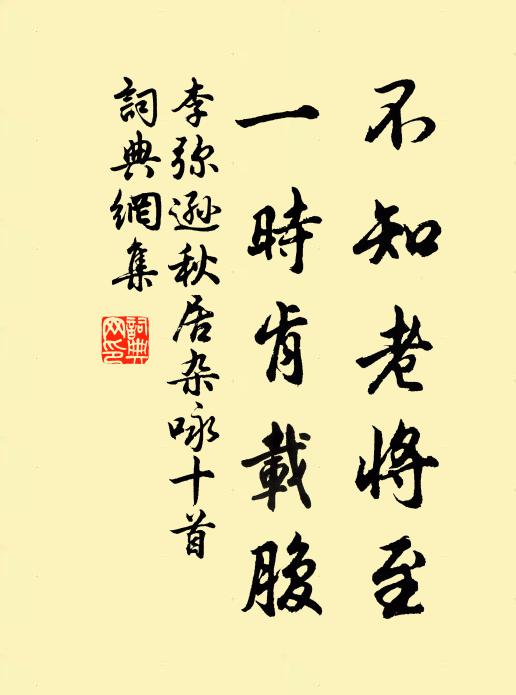 不知老將至
一時肯載腹
李弥逊秋居杂咏十首
詞典網集
詞典网印